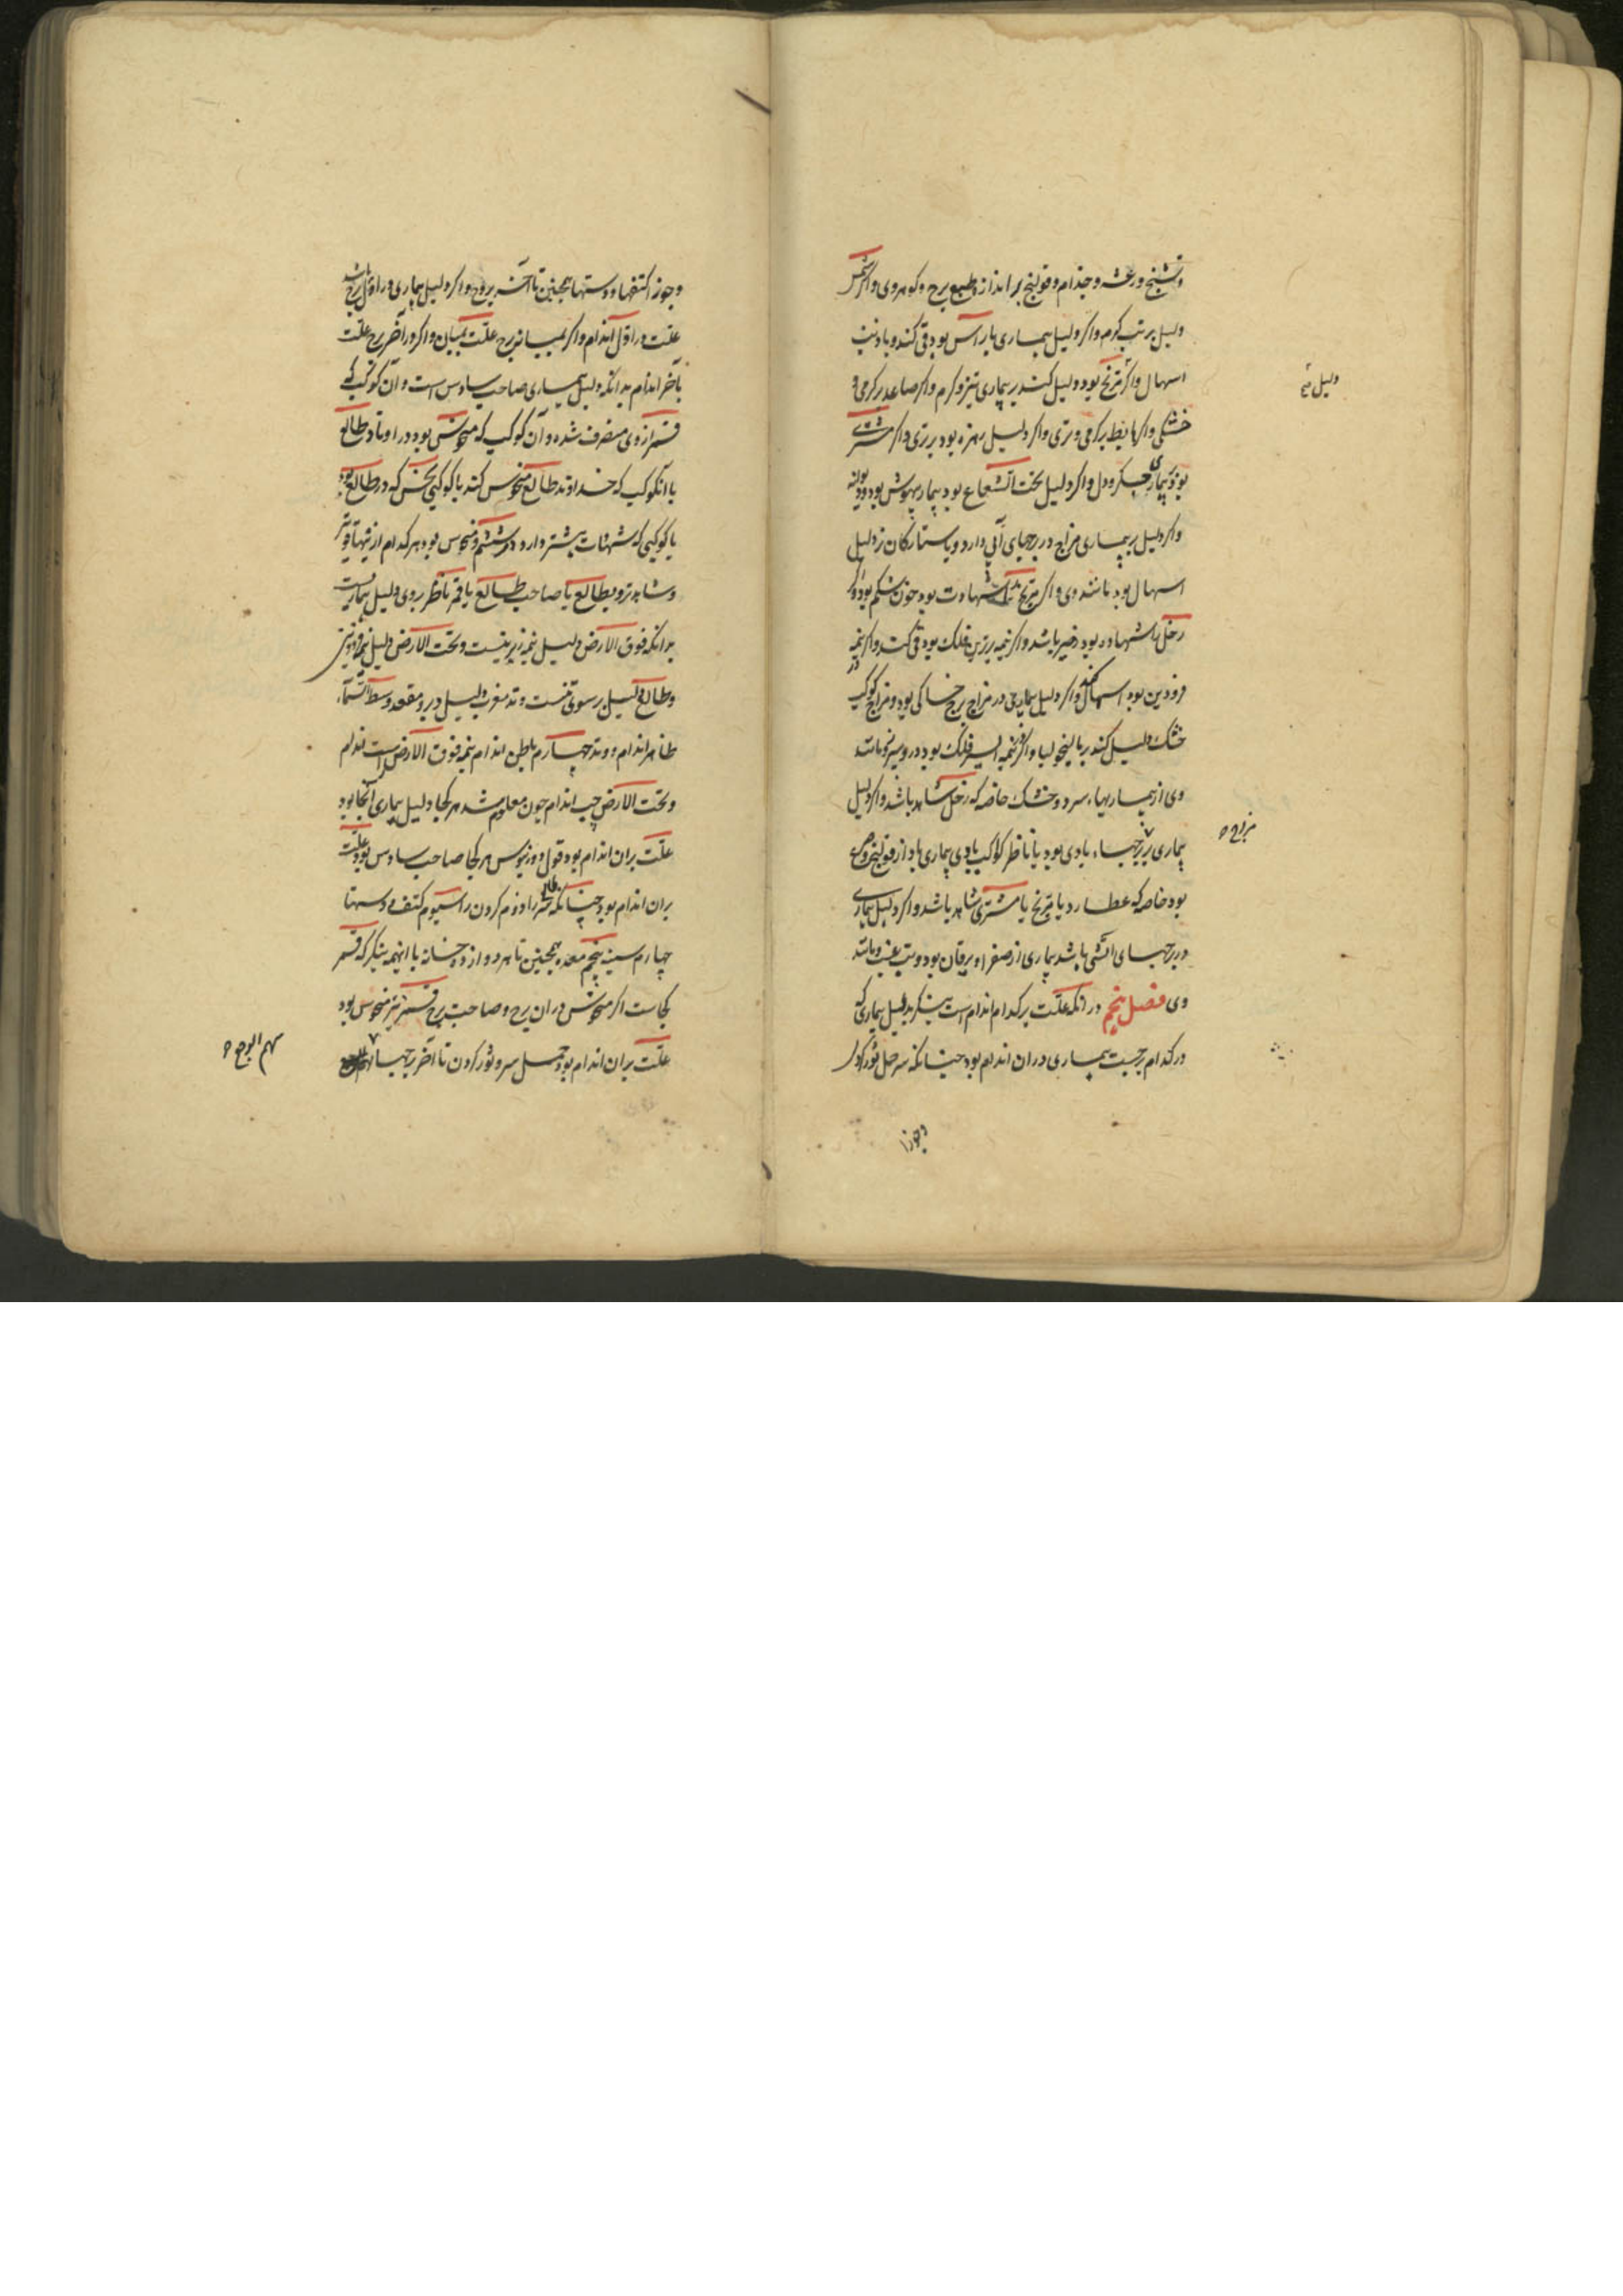 وتشنج ورعشه وجذام وقولنج بر اندازه طبع برج وكوهر وى واكر شمس
دليل بر تب كرم واكر دليل بيمارى با راس بود قى كند وبا ذنب
اسهال واكر مريخ بود دليل كند بر بيمارى تيز وكرم واكر صاعد بر كرمى و
خشكى واكر هابط بر كرمى وترى واكر دليل زهره بود بر ترى واكر مشترى
بود بيمارى جكر ودل واكر دليل تحت الشعاع بود بيمار بيهوش بود وديوانه
واكر دليل بيمارى مزاج در برجهاى آبى دارد وبا ستاركان تر دليل
اسهال بود مانند وى واكر مريخ را شهادت بود خون شكم بود واكر
زحل را شهاده بود زحير باشد واكر نيمه برترين فلك بود قى كند واكر نيمه
فرودين بود اسهال كند واكر دليل بيمارى در مزاج برج خاكى بود ومزاج كوكب
خشك دليل كند بر ماليخوليا واكر نيمه ايسر فلك بود درد سپرز ومانند
وى از بيماريهاء سرد وخشك خاصه كه زحل شاهد باشد واكر دليل
بيمارى برجهاء بادى بود يا ناظر كواكب بادى بيمارى باد از قولنج ووجع
بود خاصه كه عطارد يا مريخ يا مشترى شاهد باشد واكر دليل بيمارى
در برجهاى آتشى باشد بيمارى از صفرا ويرقان بود وتب غب ومانند
وى فصل پنجم در آنكه علت بر كدام اندام است بنكر بدليل بيمارى كه
در كدام برجست بيمارى در ان اندام بود چنانكه سر حمل ثور كردن
وجوزا
دليل تب
وجوزا كتفها ودستها همچنين تا آخر بروج واكر دليل بيمارى در اول برج باشد
علت در اول اندام واكر بميانه برج علت بميان واكر در آخر برج علت
بآخر اندام بدانكه دليل بيمارى صاحب سادس است وآن كوكب كه
قمر از وى منصرف شده وآن كوكب كه منحوس بود در اوتاد طالع
يا آنكوكب كه خداوند طالع منحوس كند يا كوكبى نحس كه در طالع بود
يا كوكبى كه شهادات بيشتر دارد در ششم ومنحوس بود هر كدام از ينها قويتر
وشاهدتر وبطالع يا صاحب طالع يا قمر ناظر بود وى دليل بيماريست
بدانكه فوق الارض دليل نيمه زبرينست وتحت الارض دليل نيمه فرودين
وطالع دليل بر سوى تنست ووتد مغرب دليل دبر ومقعد وسط السماء
ظاهر اندام ووتد چهارم باطن اندام نيمه فوق الارض راست اندام
وتحت الارض چپ اندام چون معلوم شد هر كجا دليل بيمارى آنجا بود
علت بران اندام بود قول دورنيوس هر كجا صاحب سادس بود علت
بران اندام بود چنانكه طالع سر را ودوم كردن را سيوم كتف ودستها
چهارم سينه پنجم معده همچنين تا هر دوازده خانه با اينهمه بنكر كه قمر
كجاست اكر منحوس در ان برج وصاحب برج قمر نيز منحوس بود
علت بران اندام بود حمل سر وثور كردن تا آخر برجها